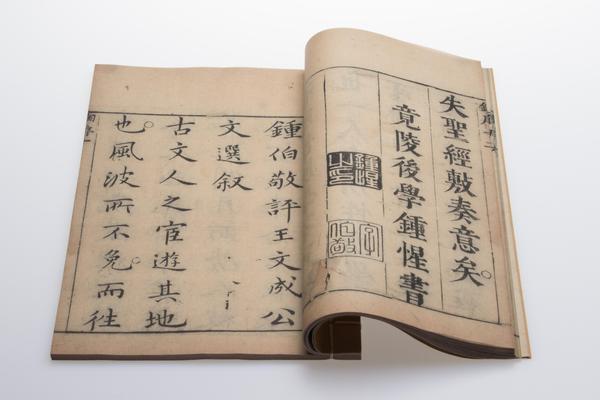 失聖經敷奏意矣
竟陵後學鍾惺書
鍾惺之印
伯敬
鍾伯敬評王文成公
文選叙
古文人之宦遊其地
也風波所不免而往